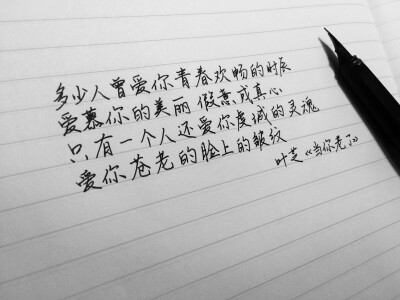 多少人曾爱你青春欢畅的时辰
爱慕你的美丽 假意或真心
只有一个人还爱你虔诚的灵魂
爱你苍老的脸上的皱纹
叶芝《当你老了》